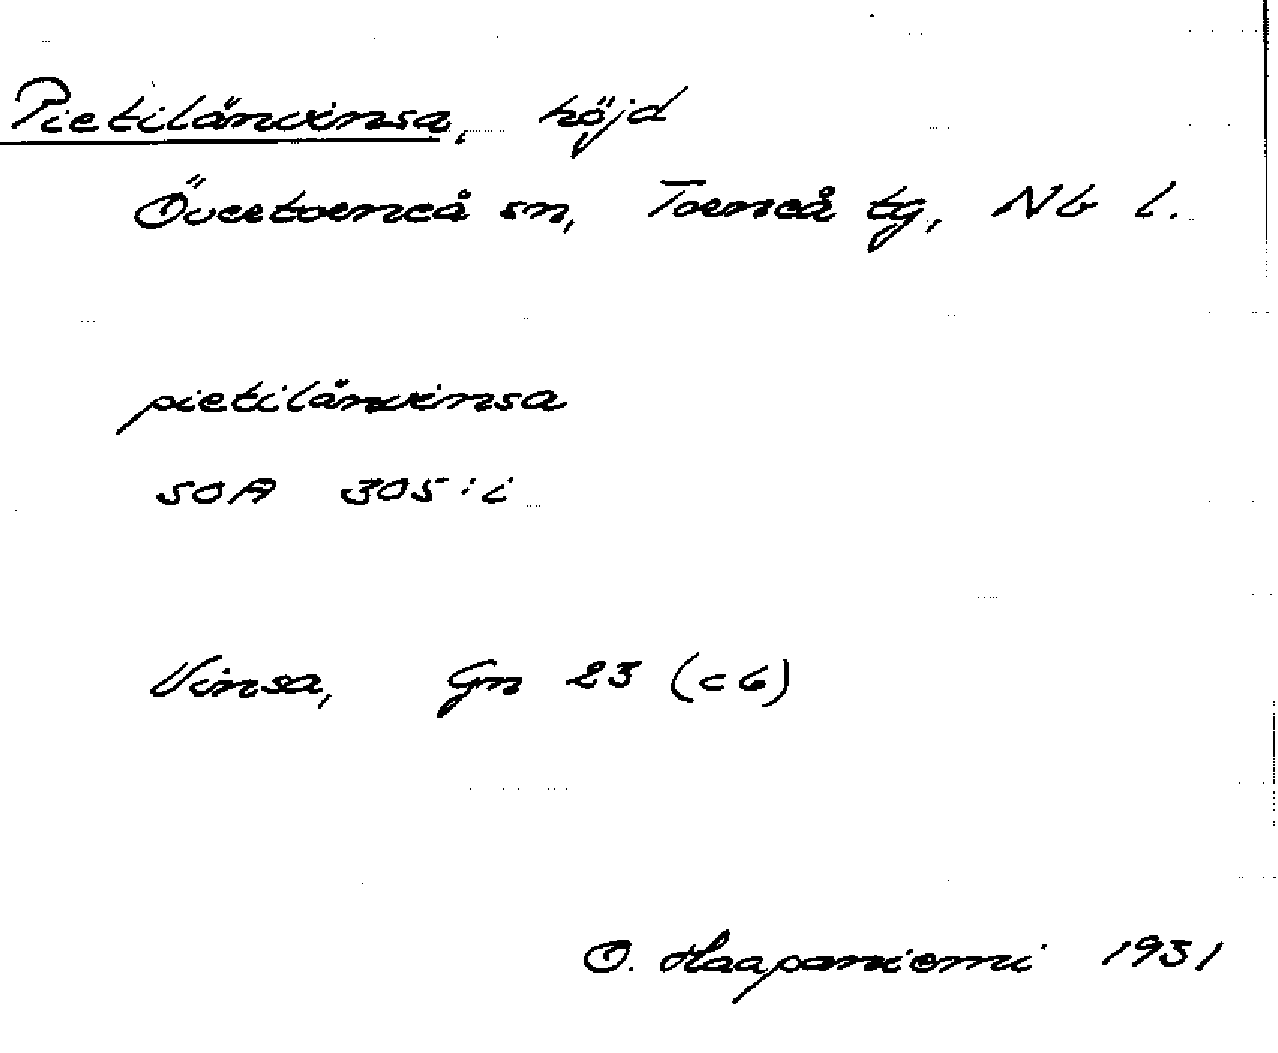 Pietilänvinsa, höjd
Övertorneå sn, Torneå tg, Nb l.
pietilänvinsa
SOA 305:i
Vinsa, Gn 23 (c6)
O. Haapaniemi 1931